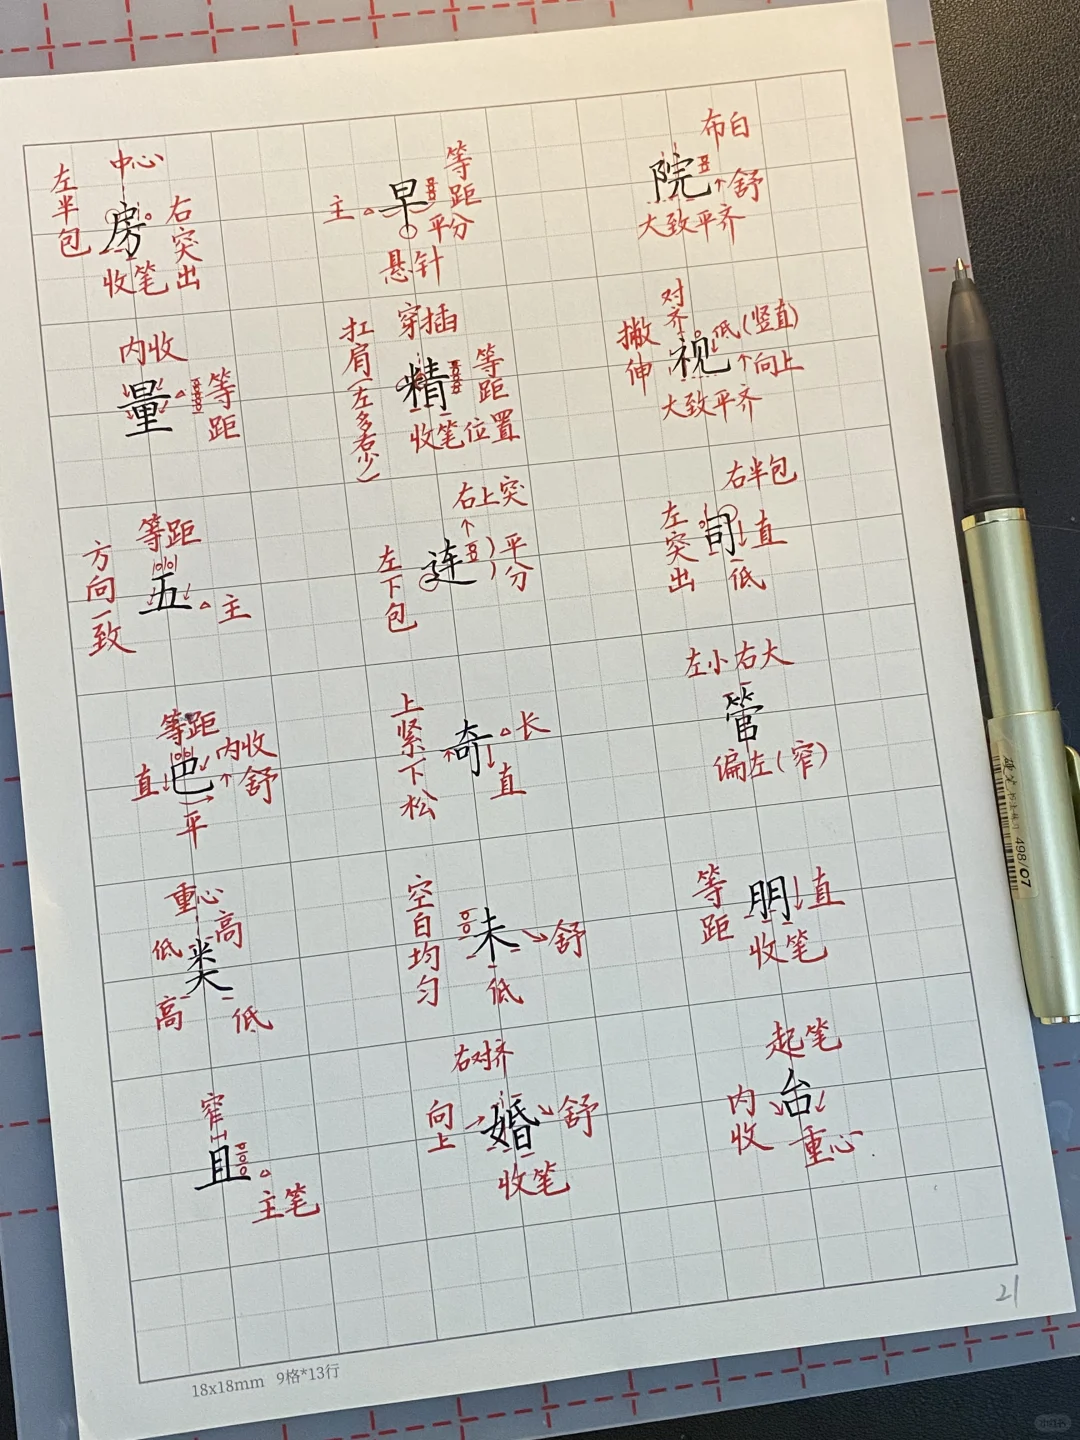 中心
左半包
房
右突出
收笔
等距
主
早
平分
悬针
布白
院
舒
大致平齐
内收
量
等距
穿插
扛肩(左多右少)
精
等距
收笔位置
对齐
撇伸
视
低(竖直)
向上
大致平齐
等距
方向一致
五
主
右上突
左下包
连
平分
右半包
左突出
司
直
低
等距
直
巴
内收
舒
平
上紧下松
奇
长
直
左小右大
管
偏左(窄)
重心
低
高
类
高
低
空白均匀
未
舒
低
等距
朋
直
收笔
窄
且
主笔
右对齐
向上
婚
舒
收笔
起笔
内收
台
重心
21
18x18mm 9格*13行
498/07